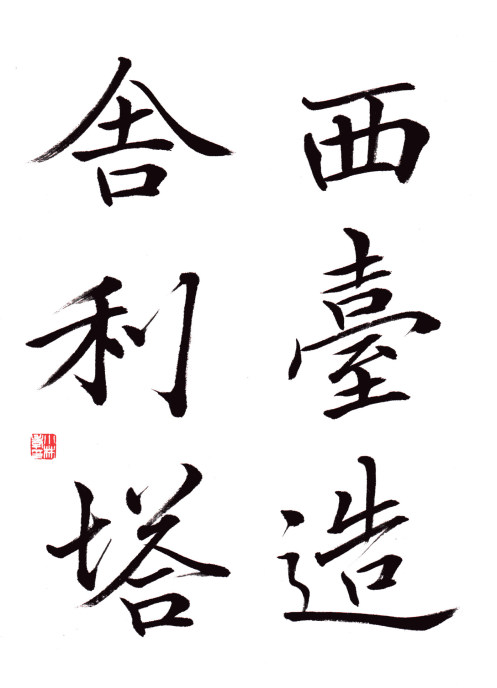 西臺造
舍利塔